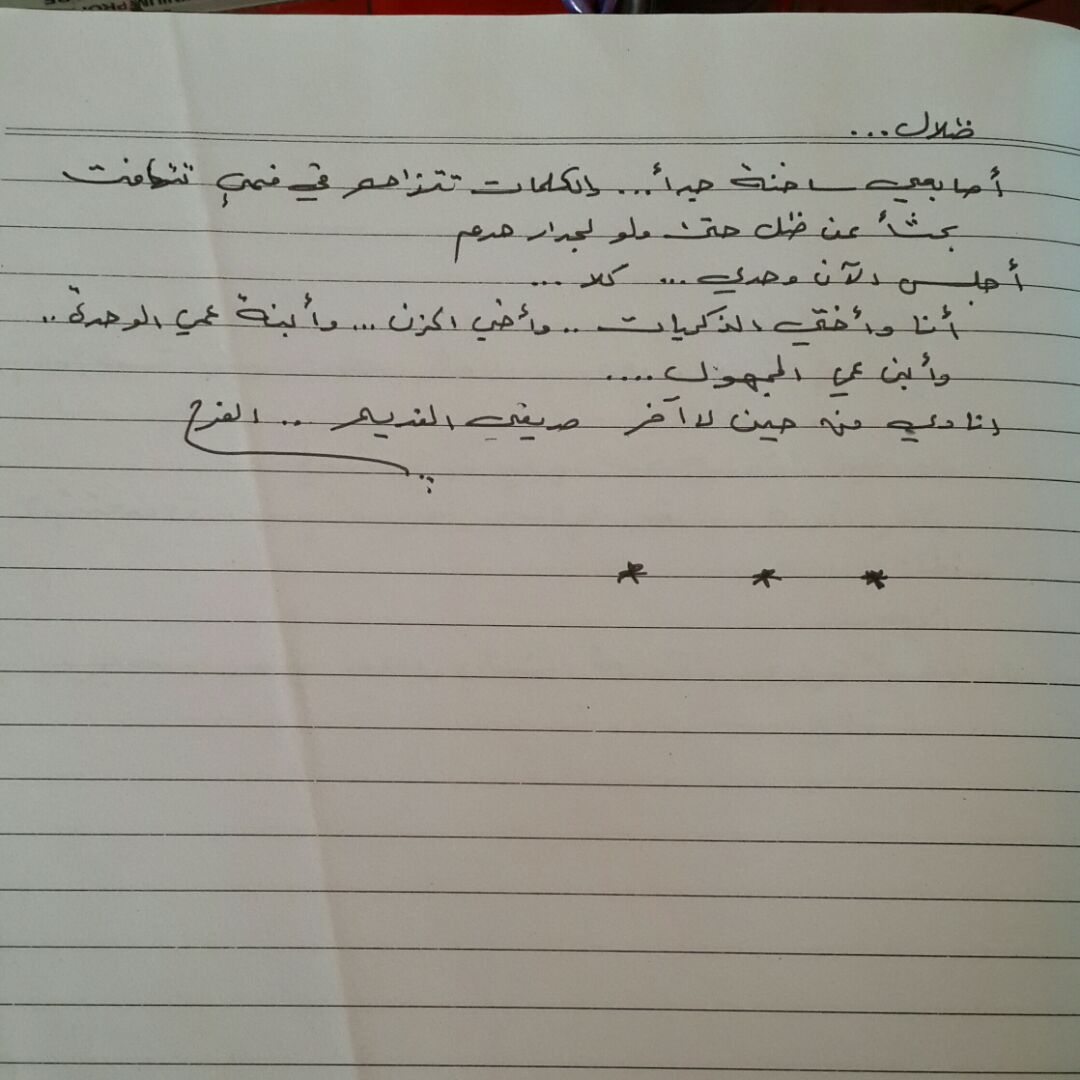 ظلال...
أصابعي ساخنة جداً... والكلمات تتزاحم في فمي تتهافت
بحثاً عن ظل حتى ولو لجدار هرم
أجلس الآن وحدي... كلا...
أنا وأختي الذكريات.. وأخي الحزن... وأبنة عمي الوحدة..
وأبن عمي المجهول....
انادي من حين لآخر صديقي القديم.. الفرح
* * *